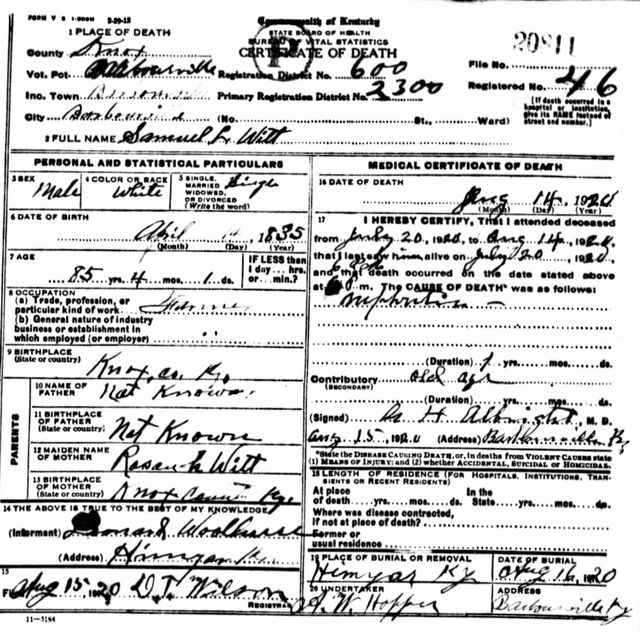 FORM V S 1-500M 3-29-12
Commonwealth of Kentucky
STATE BOARD OF HEALTH
BUREAU OF VITAL STATISTICS
CERTIFICATE OF DEATH
1 PLACE OF DEATH
County Knox
Vot. Pct. Barbourville Registration District No. 600
Inc. Town Primary Registration District No. 2300
City Barbourville (No. St., Ward)
File No. 20811
Registered No. 46
[If death occurred in a hospital or institution, give its NAME instead of street and number.]
2 FULL NAME Samuel L Witt
PERSONAL AND STATISTICAL PARTICULARS
3 SEX Male
4 COLOR OR RACE White
5 SINGLE, MARRIED WIDOWED, OR DIVORCED (Write the word) Single
6 DATE OF BIRTH
April 14, 1835
(Month) (Day) (Year)
7 AGE
85 yrs. 4 mos. 1 ds.
IF LESS than 1 day... hrs. or min.?
8 OCCUPATION
(a) Trade, profession, or particular kind of work Farmer
(b) General nature of industry business or establishment in which employed (or employer) "
9 BIRTHPLACE
(State or country) Knox Co. Ky.
PARENTS
10 NAME OF FATHER Not Known
11 BIRTHPLACE OF FATHER (State or country) Not Known
12 MAIDEN NAME OF MOTHER Witt
13 BIRTHPLACE OF MOTHER (State or country) Knox Ky.
14 THE ABOVE IS TRUE TO THE BEST OF MY KNOWLEDGE
(Informant)
(Address) Himyar Ky.
15
Aug 15 1920 D. T. Wilson
REGISTRAR
11-3184
MEDICAL CERTIFICATE OF DEATH
16 DATE OF DEATH
Aug 14, 1920
(Month) (Day) (Year)
17 I HEREBY CERTIFY, That I attended deceased
from July 20, 1920, to Aug 14, 1920,
that I last saw him alive on July 20, 1920,
and that death occurred on the date stated above
at m. The CAUSE OF DEATH* was as follows:
Nephritis
(Duration) 1 yrs. mos. ds.
Contributory old age
(SECONDARY)
(Duration) yrs. mos. ds.
(Signed) A H Albright, M. D.
Aug 15, 1920 (Address) Barbourville Ky
*State the DISEASE CAUSING DEATH, or, in deaths from VIOLENT CAUSES state
(1) MEANS OF INJURY; and (2) whether ACCIDENTAL, SUICIDAL or HOMICIDAL.
18 LENGTH OF RESIDENCE (FOR HOSPITALS, INSTITUTIONS, TRANSIENTS OR RECENT RESIDENTS)
At place of death yrs. mos. ds. In the State yrs. mos. ds.
Where was disease contracted, if not at place of death?
Former or usual residence
19 PLACE OF BURIAL OR REMOVAL Himyar Ky
DATE OF BURIAL Aug 16, 1920
20 UNDERTAKER W Hopper
ADDRESS Barbourville Ky